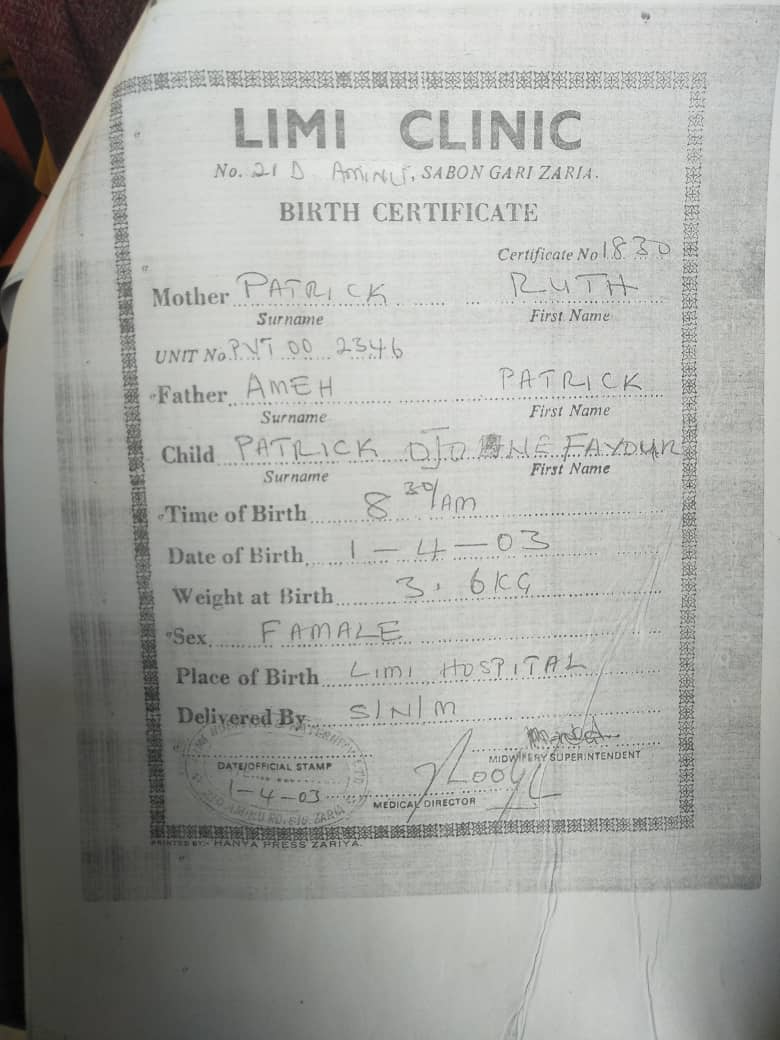 LIMI CLINIC
No. 21 D AMINU, SABON GARI ZARIA.
BIRTH CERTIFICATE
Certificate No 1830
Mother PATRICK RUTH
Surname First Name
UNIT No PVT 00 2346
Father AMEH PATRICK
Surname First Name
Child PATRICK FAVOUR
Surname First Name
Time of Birth 8 30/AM
Date of Birth 1-4-03
Weight at Birth 3.6KG
Sex FAMALE
Place of Birth LIMI HOSPITAL
Delivered By S/N/M
MIDWIFERY SUPERINTENDENT
DATE/OFFICIAL STAMP
1-4-03
MEDICAL DIRECTOR
PRINTED BY:- HANYA PRESS ZARIYA.